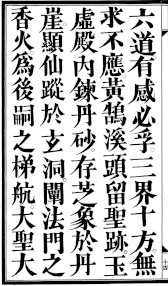 六道有感必孚三界十方無
求不應黃鵠溪頭留聖跡玉
虛殿內鍊丹砂存芝象於丹
崖顯仙蹤於玄洞闡法門之
香火為後嗣之梯航大聖大